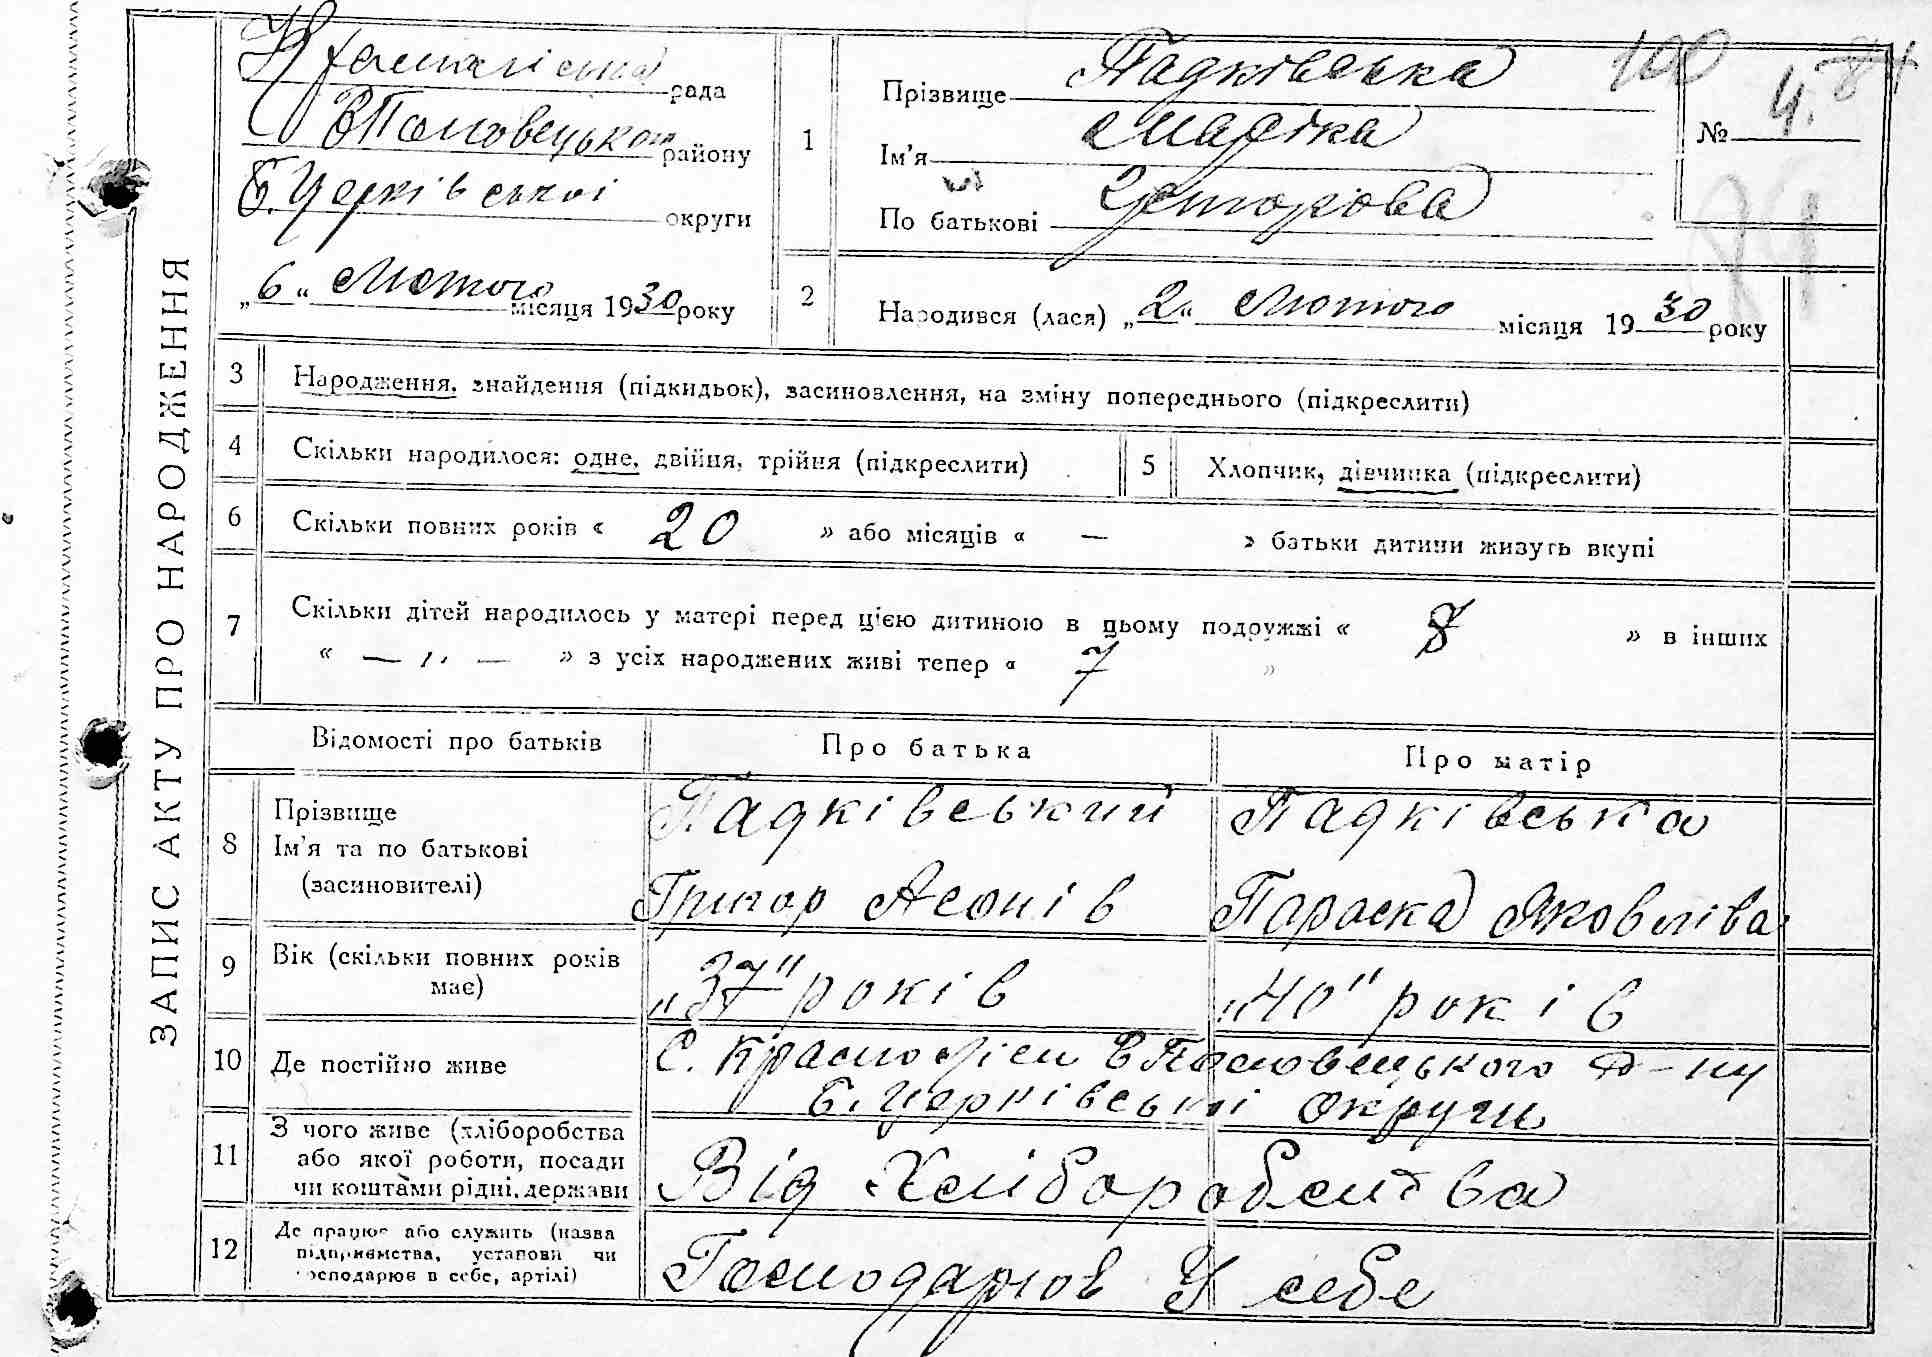 ЗАПИС АКТУ ПРО НАРОДЖЕННЯ
рада
В Половецького району
Б. Церківської округи
„6“ Лютого місяця 1930 року
1
Прізвище Падківська
Ім'я Марійка
По батькові Григорова
100
№ 4. 84
84
2
Народився (лася) „2“ Лютого місяця 1930 року
3
Народження, знайдення (підкидьок), засиновлення, на зміну попереднього (підкреслити)
4
Скільки народилося: одне, двійня, трійня (підкреслити)
5
Хлопчик, дівчинка (підкреслити)
6
Скільки повних років « 20 » або місяців « — » батьки дитини живуть вкупі
7
Скільки дітей народилось у матері перед цією дитиною в цьому подружжі « 8 » в інших
« — „ — » з усіх народжених живі тепер « 7 »
Відомості про батьків
Про батька
Про матір
8
Прізвище
Ім'я та по батькові
(засиновителі)
Падківський
Григор Леонів
Падківська
Параска Яковлівa
9
Вік (скільки повних років має)
„37" років
„40" років
10
Де постійно живе
С. В Половецького Р-ну
Б. Церківської округи
11
З чого живе (хліборобства
або якої роботи, посади
чи коштами рідні, держави
Від Хліборобства
12
Де працює або служить (назва
підприємства, установи чи
господарює в себе, артілі)
Господарюв У себе